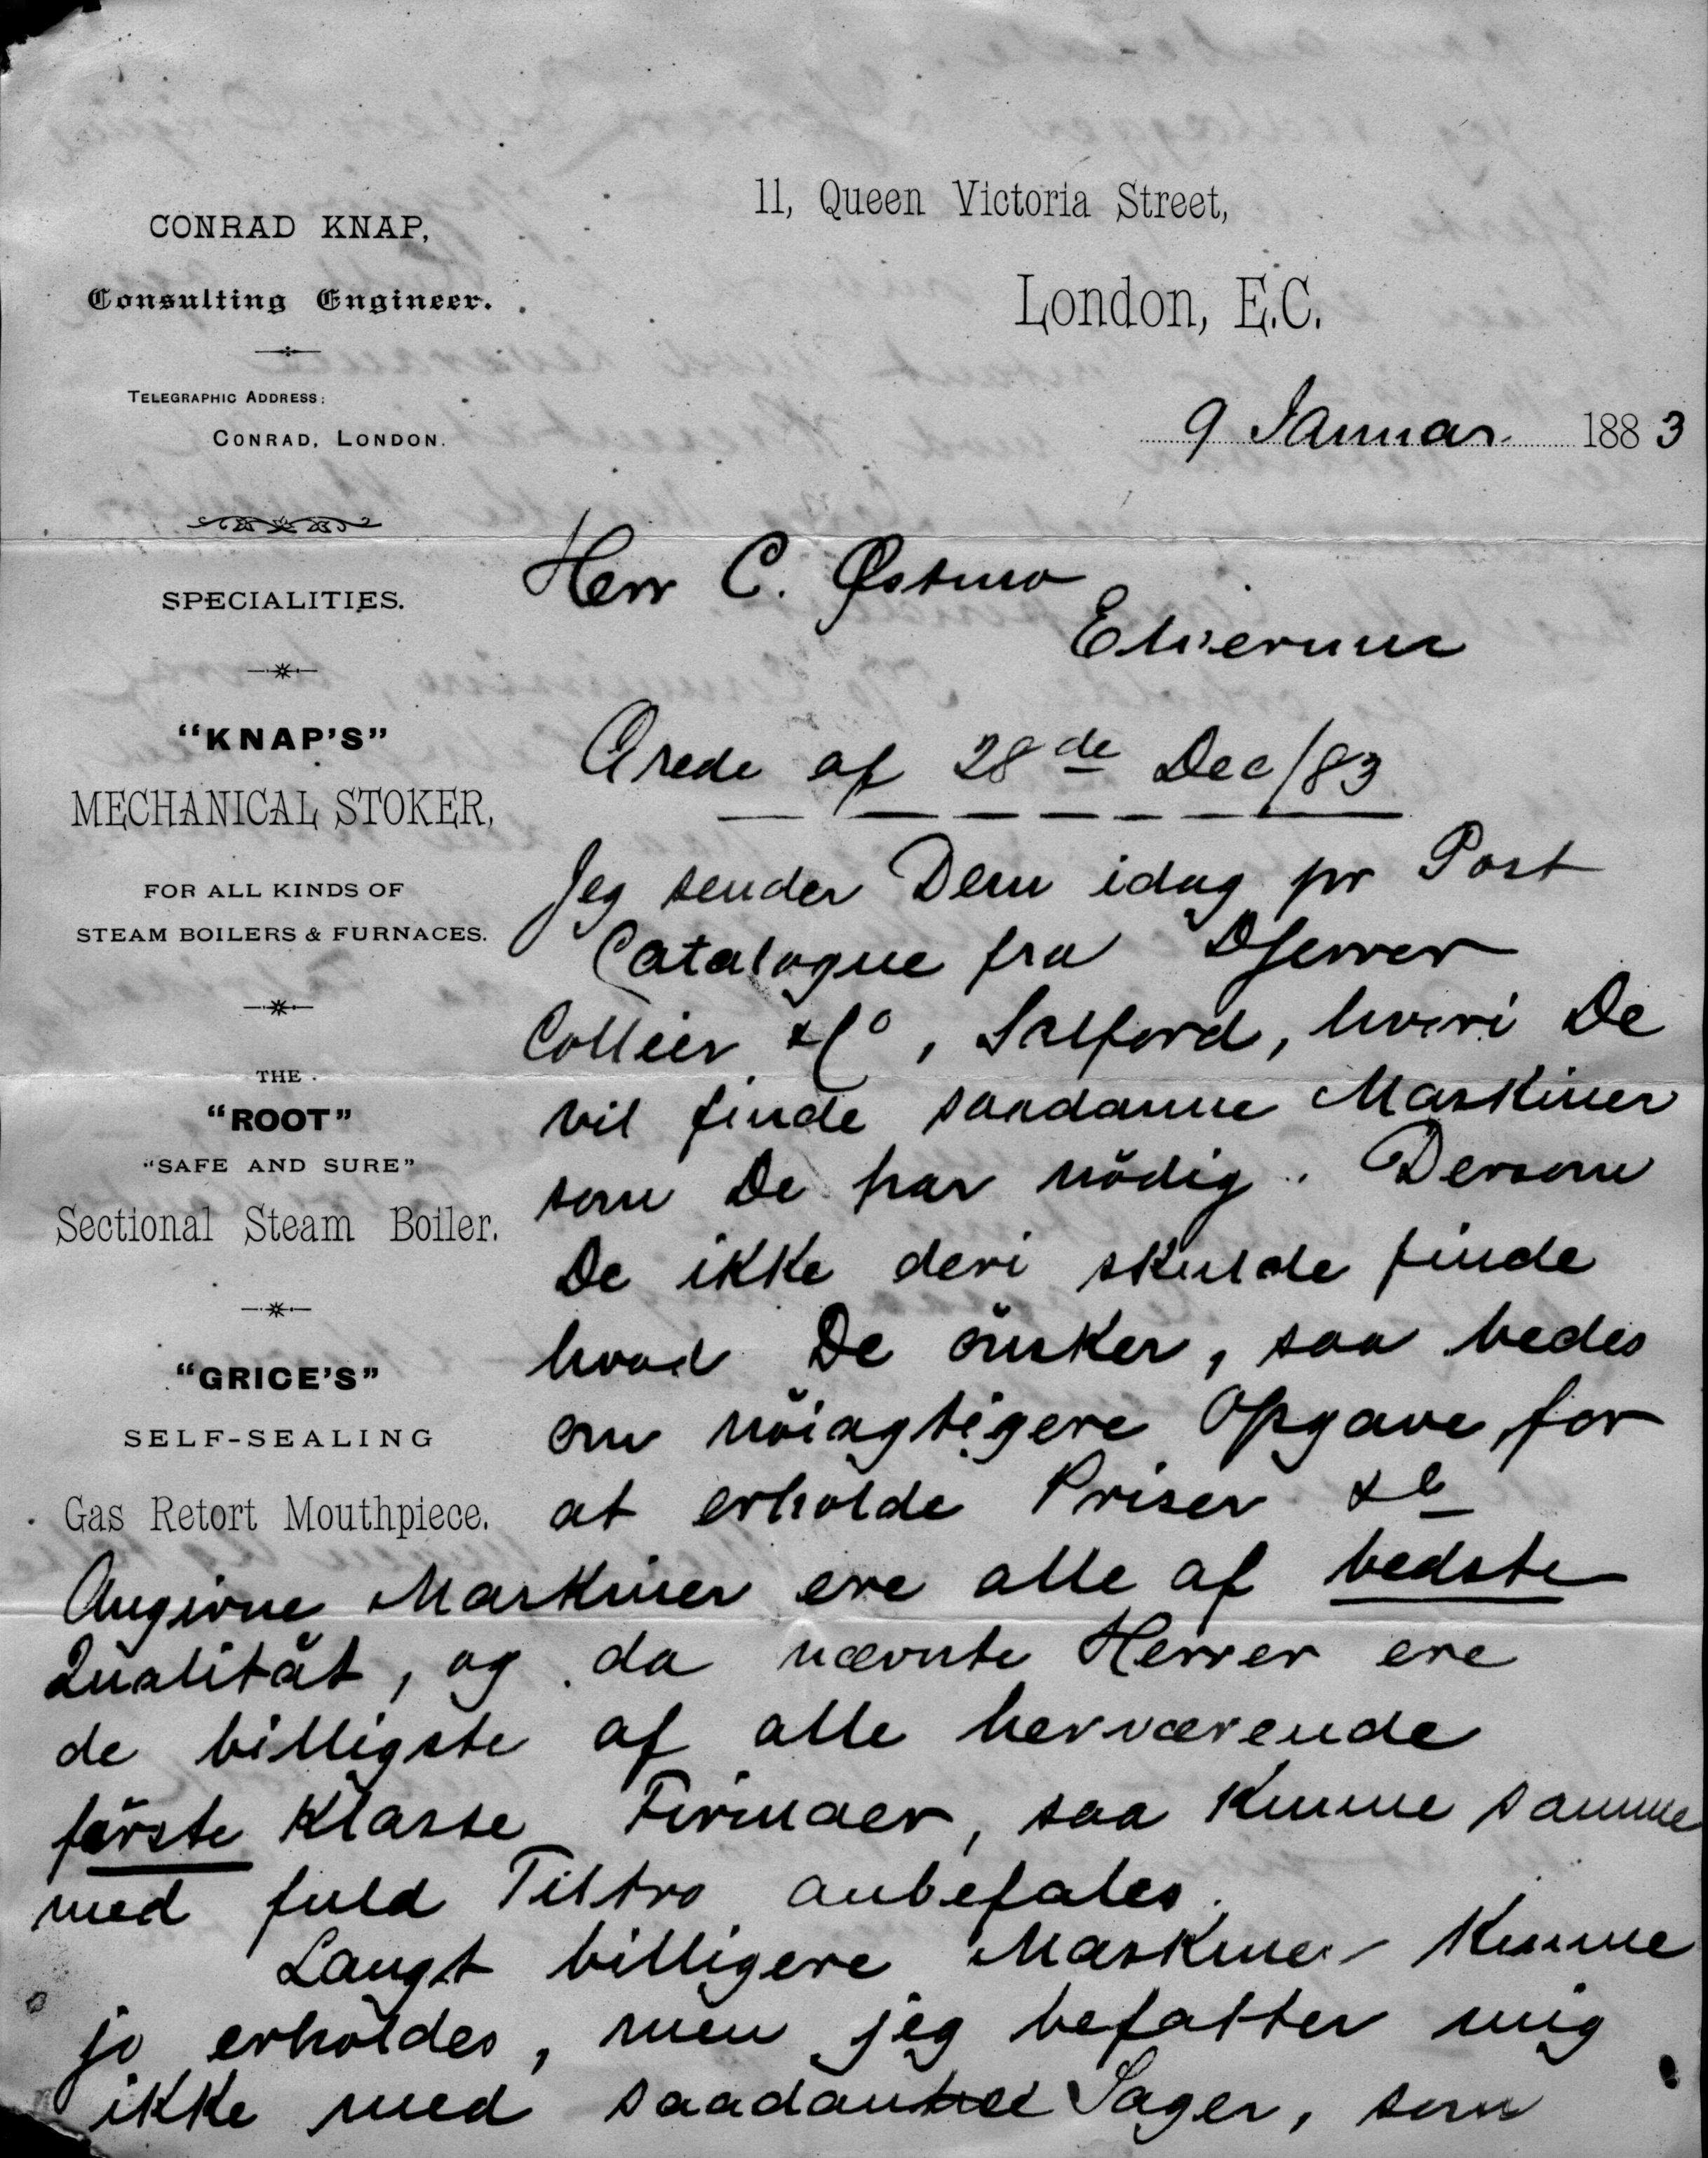 CONRAD KNAP,
Consulting Engineer.
TELEGRAPHIC ADDRESS:
CONRAD, LONDON.
11, Queen Victoria Street,
London, E.C.
9 Januar 1883
SPECIALITIES.
"KNAP'S"
MECHANICAL STOKER,
FOR ALL KINDS OF
STEAM BOILERS & FURNACES.
THE
"ROOT"
"SAFE AND SURE"
Sectional Steam Boiler.
"GRICE'S"
SELF-SEALING
Gas Retort Mouthpiece.
Herr C. Østmo
Elverum
Ærede af 28de Dec/83
Jeg sender Dem idag pr Post
Catalogue fra Herrer
Collier & Co, Salford, hvori De
vil finde saadanne Maskiner
som De har nödig. Dersom
De ikke deri skulde finde
hvad De önsker, saa bedes
om nöiagtigere Opgave for
at erholde Priser &c
Angivne Maskiner ere alle af bedste
Qualität, og da nævnte Herrer ere
de billigste af alle herværende
förste Klasse Firmaer, saa kunne samme
med fuld Tiltro anbefales.
Langt billigere Maskiner kunne
jo erholdes, men jeg befatter mig
ikke med saadanne Sager, som